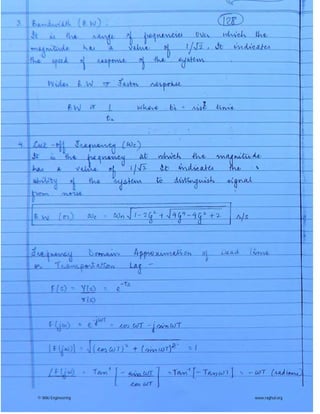 128
3. Bandwidth (B.W) :
It is the range of frequencies over which the
magnitude has a value of 1/√2. It indicates
the speed of response of the system.
Wider B.W ⇒ Faster response
B.W ∝ 1/tr where tr = rise time
4. Cut-off Frequency (ωc)
It is the frequency at which the magnitude
has a value of 1/√2. It indicates the
ability of the system to distinguish signal
from noise.
B.W (or) ωc = ωn √1-2ζ² + √4ζ⁴-4ζ²+2 r/s
Frequency Domain Approximation of Dead time
or Transportation Lag -
F(s) = Y(s)/X(s) = e^-Ts
F(jω) = e^-jωT = cos ωT - j sin ωT
|F(jω)| = √(cos ωT)² + (sin ωT)² = 1
∠F(jω) = Tan⁻¹ [- sin ωT / cos ωT] = Tan⁻¹ [-Tan ωT] = -ωT (radians)
Engineering
www.raghul.org